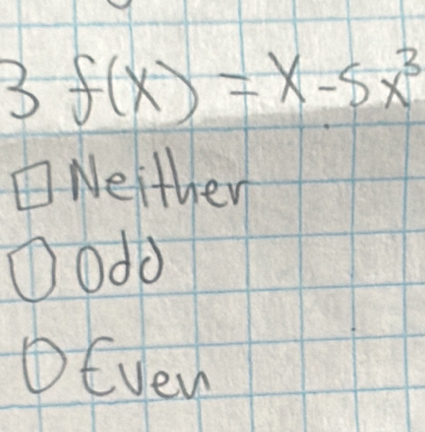 3 f(x) = x - 5x³
Neither
Odd
Even